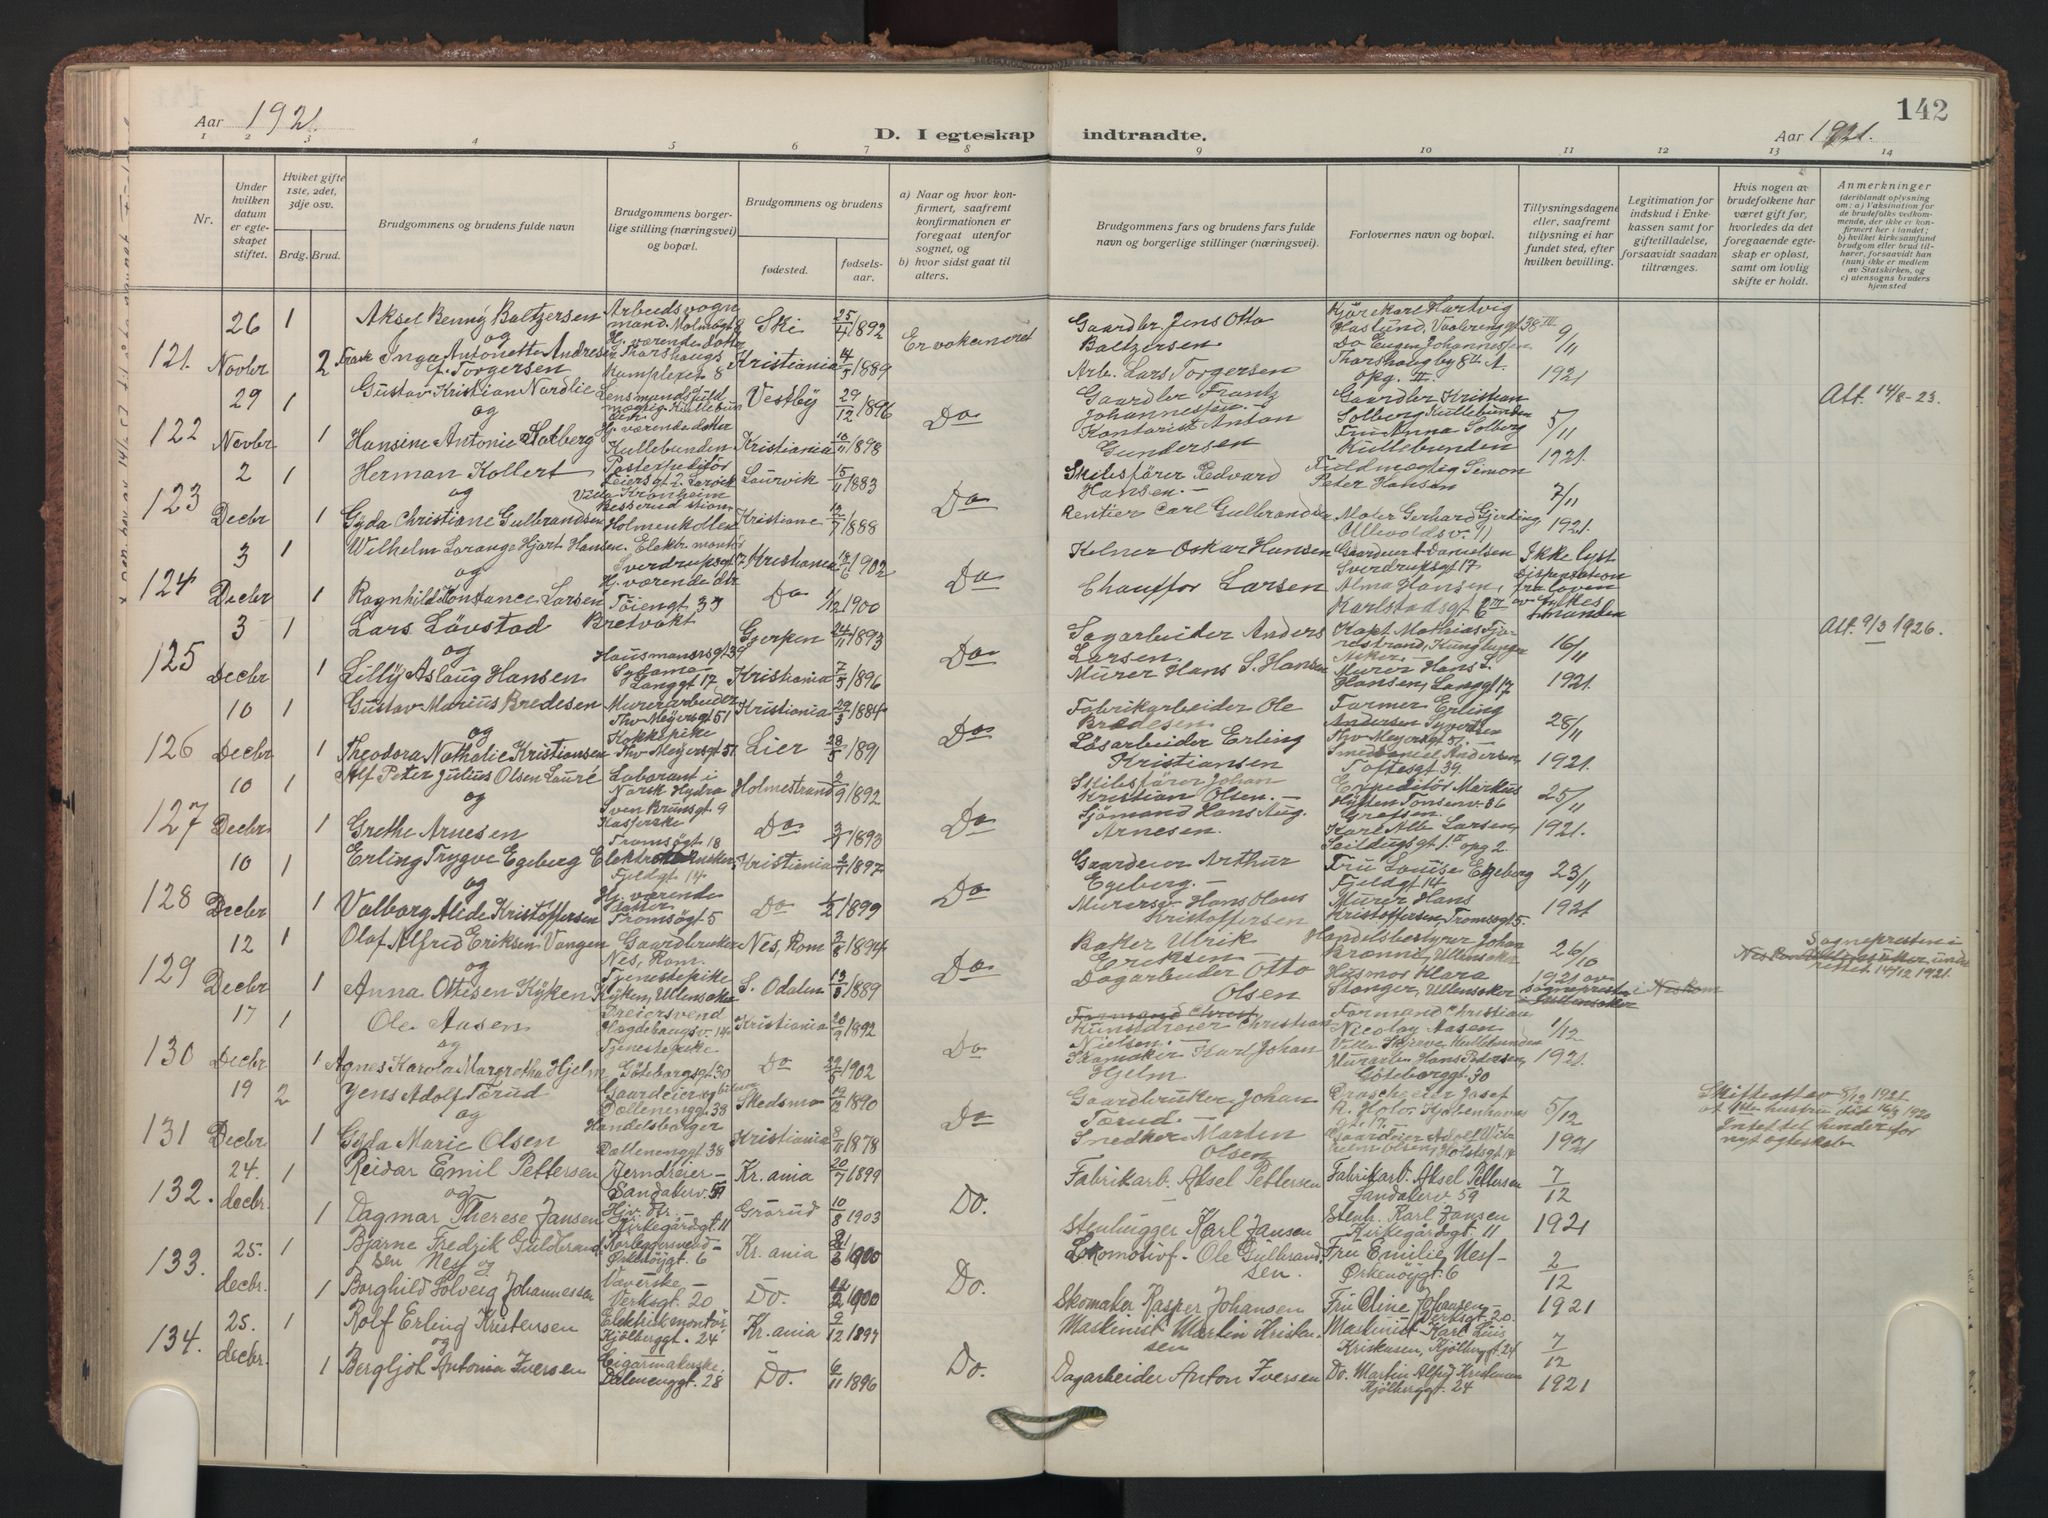 142
Aar 1921.
D. I egteskap indtraadte.
Aar 1921.
1 2 3 4 5 6 7 8 9 10 11 12 13 14
Nr.
Under hvilken datum er egteskapet stiftet.
Hvilket gifte 1ste, 2det, 3dje osv.
Brdg. Brud.
Brudgommens og brudens fulde navn
Brudgommens borgerlige stilling (næringsvei) og bopæl.
Brudgommens og brudens
fødested.
fødselsaar.
a) Naar og hvor konfirmert, saafremt konfirmationen er foregaat utenfor sognet, og
b) hvor sidst gaat til alters.
Brudgommens fars og brudens fars fulde navn og borgerlige stillinger (næringsvei).
Forlovernes navn og bopæl.
Tillysningsdagene eller, saafremt tillysning ei har fundet sted, efter hvilken bevilling.
Legitimation for indskud i Enkekassen samt for giftetilladelse, forsaavidt saadan tiltrænges.
Hvis nogen av brudefolkene har været gift før, hvorledes da det foregaaende egteskap er opløst, samt om lovlig skifte er holdt.
Anmerkninger (deriblandt oplysning om: a) Vaksination for de brudefolks vedkommende, der ikke er konfirmert her i landet; b) hvilket kirkesamfund brudgom eller brud tilhører, forsaavidt han (hun) ikke er medlem av Statskirken, og c) utensogns bruders hjemsted
121. 26 Novbr 1 2
Aksel Benny Baltzersen
og
Inga Antonette Andresen
f. Torgersen
Arbeidsvognmand. Molmögt 8
Hj. værende dotter
Thorshaugs Komplexet 8
Ski 25/4 1892
Kristiania 14/5 1889
Er vaksineret
Gaardbr Jens Otto
Baltzersen
Arb. Lars Torgersen
Kjörekarl Hartvig
Haslund, Vaalerenggt 38 III
Do Eugen Johannessen
Thorshaugby 8 A.
opg. II.
9/11 1921
122 29 Novbr 1 1
Gustav Kristian Nordlie
og
Hansine Antonie Solberg
Lensmandsfuldmægtig Kullebunden
Hj. værende dotter
Kullebunden
Vestby 29/12 1896
Kristiania 10/11 1898
Do
Gaardbr Frantz
Johannessen
Kontorist Anton
Gundersen
Gaardbr Kristian
Solberg Kullebunden
Fru Anna Solberg
Kullebunden
5/11 1921.
Att. 14/8-23.
123 2 Decbr 1 1
Herman Kollert
og
Gyda Christiane Gulbrandsen
Postexpeditör
Leiersgt i Larvik
Villa Kronheim
Besserud stion
Holmenkollen
Laurvik 15/11 1883
Kristiania 1888
Do
Skibsförer Edvard
Hansen.
Rentier Carl Gulbrandsen
Fuldmægtig Simon
Peter Hansen
Maler Gerhard Gjerding
Ullevoldsv. 11
7/11 1921.
124 3 Decbr 1 1
Wilhelm Lorange Hjort Hansen.
og
Ragnhild Konstance Larsen
Elektr. montör
Sverdrupsgt 17
Hj. værende dtr
Töiengt 33
Kristiania 1902
Do 1/12 1900
Do
Kelner Oskar Hansen
Chauffør Larsen
Gaardeier A Danielsen
Sverdrupsgt 17
Alma Hansen,
Karlstadsgt 6 III
Ikke lyst
Dispensation
fra loven
av Fylkesmanden
125 3 Decbr 1 1
Lars Lövstad
og
Lilly Aslaug Hansen
Bretvakt
Hausmannsgt 39
Sydame
Langgt 17
Gjerpen 24/11 1893
Kristiania 7/5 1896
Do
Sagarbeider Anders
Larsen
Murer Hans S. Hansen
Kapt. Mathias Fjorestrand, Kunglunger
Asker.
Murer Hans S.
Hansen, Langgt 17
16/11 1921.
Att. 9/3 1926.
126 10 Decbr 1 1
Gustav Marius Bredesen
og
Theodora Nathalie Kristiansen
Murerarbeider
Thv Meyersgt 51
Kokkepike
Thv. Meyersgt 51
Kristiania 29/3 1884
Lier 28/5 1891
Do
Fabrikarbeider Ole
Bredesen
Lösarbeider Erling
Kristiansen
Farmer Erling
Andersen Syvertsen
Thv Meyersgt 51
Smed Daniel Andersen
Toftesgt 39.
28/11 1921.
127 10 Decbr 1 1
Alf Peter Julius Olsen Lauré
og
Grethe Arnesen
Laborant i
Norsk Hydro
Sven Brunsgt 9
Kasserske
Tromsögt 18
Holmestrand 2/9 1892
Do 1893
Do
Skibsförer Johan
Kristian Olsen.
Sjömand Hans Aug.
Arnesen.
Expeditör Markus
Höften Tonsenv. 36
Grefsen.
Karl Alb Larsen,
Seildugsgt 1 opg 2.
25/11 1921.
128 10 Decbr 1 1
Erling Trygve Egeberg
og
Valborg Alide Kristoffersen
Elektrotekniker
Fjeldgt 14
Hj. værende
datter
Tromsögt 5
Kristiania 1897
Do 1/2 1899
Do
Gaardeier Arthur
Egeberg.
Murersv. Hans Olaus
Kristoffersen
Fru Louise Egeberg
Fjeldgt 14
Murer Hans
Kristoffersen, Tromsögt 5.
23/11 1921
129 12 Decbr 1 1
Olaf Alfred Eriksen Vangen
og
Anna Ottesen Kÿken
Gaardbruker
Nes, Rom.
Tjenestepike
Kÿken, Ullensaker
Nes, Rom 3/8 1894
S. Odalen 13/3 1889
Do
Baker Ulrik
Eriksen
Dagarbeider Otto
Olsen
Handelsbestyrer Johan
Brønni, Ullensaker
Husmor Klara
Stanger, Ullensaker
26/10 1921 av
sogneprest
i Ullensaker
i Nes Rom
Sognepresten i
Ullensaker, underrettet 14/12 1921.
130 17 Decbr 1 1
Ole Aasen
og
Agnes Karola Margrethe Hjelm
Dreiersvend
Hægdehaugsv. 14
Tjenestepike
Göteborggt 30
Kristiania 20/9 1892
Do 29/5 1902
Do
Formand Christ
Kunstdreier Christian
Nielsen.
Skomaker Karl Johan
Hjelm
Formand Christian
Nicolay Aasen
Villa Skjerve Kullebunden
Murarb. Hans Petersen,
Göteborggt. 30
1/12 1921.
131 19 Decbr 2 1
Jens Adolf Törud
og
Gÿda Marie Olsen
Gaardeier og
Dællenenggt. 38
Handelsborger
Dællenenggt 38
Skedsmo 12/12 1890
Kristiania 8/11 1878
Do
Gaardbruker Johan
Törud.
Snedker Marten
Olsen
Droscheeier Josef
A. Holer. Kjøbenhavns
gt. 17.
Gaardeier Adolf Wilhelm Olsen, Holstsgt 14
5/12 1921
Skifteatt av 8/12 1921
at 1ste hustru död 16/3 1920
Intet til hinder for
nyt ægteskab
132. 24. decbr. 1 1
Reidar Emil Pettersen
og
Dagmar Therese Jansen
Jerndreier
Sandakerv. 59
Hjv. dtr.
Kirkegårdsgt. 11
Kr.ania 20/7 1899
Grorud 10/8 1903
Do.
Fabrikarb. Aksel Pettersen
Stenhugger Karl Jansen
Fabrikarb. Aksel Pettersen
Sandakerv. 59
Stenh. Karl Jansen
Kirkegårdsgt. 11
7/12 1921
133. 25. decbr. 1 1
Bjarne Fredrik Guldbrandsen Ness og
Borghild Solveig Johannessen
Rörleggersvend
Örkenöygt. 6
Væverske
Verksgt. 20
Kr.ania 1900
Do. 1900
Do.
Lokomotivf. Ole Gulbrandsen.
Skomaker Kasper Johansen
Fru Emilie Ness
Örkenöygt. 6
Fru Oline Johansen
Verksgt. 20.
2/12 1921
134. 25. decbr. 1 1
Rolf Erling Kristensen
og
Bergljot Antonia Iversen
Elektrikmontör
Kjölberggt. 24
Cigarmakerske
Dælenenggt. 28
Kr.ania 2/12 1897
Do. 6/11 1896
Do.
Maskinist Martin Kristensen
Dagarbeider Anton Iversen
Maskinist Karl Luis
Kristensen, Kjölberggt. 24
Do. Martin Alfred Kristensen
Kjölberggt. 24
7/12 1921